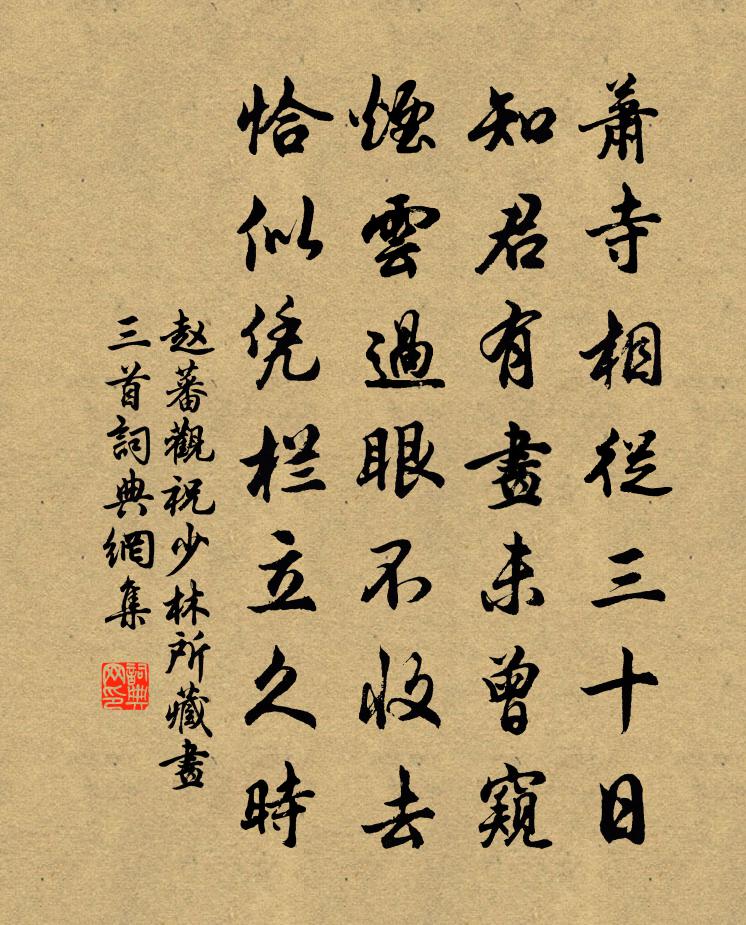 蕭寺相從三十日
知君有畫未曾窺
煙雲過眼不收去
恰似凭栏立久時
赵蕃觀祝少林所藏畫
三首詞典網集
詞典网印